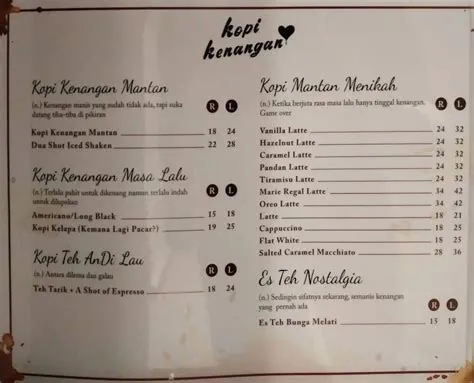 kopi
kenangan
Kopi Kenangan Mantan
(n.) Kenangan manis yang sudah tidak ada, tapi suka
datang tiba-tiba di pikiran
R L
Kopi Kenangan Mantan 18 24
Dua Shot Iced Shaken 22 28
Kopi Kenangan Masa Lalu
(n.) Terlalu pahit untuk dikenang namun terlalu indah
untuk dilupakan
R L
Americano/Long Black 15 18
Kopi Kelapa (Kemana Lagi Pacar?) 19 25
Kopi Teh AnDi Lau
(n.) Antara dilema dan galau
R L
Teh Tarik + A Shot of Espresso 18 24
Kopi Mantan Menikah
(n.) Ketika berjuta rasa masa lalu hanya tinggal kenangan.
Game over
R L
Vanilla Latte 24 32
Hazelnut Latte 24 32
Caramel Latte 24 32
Pandan Latte 24 32
Tiramisu Latte 24 32
Marie Regal Latte 34 42
Oreo Latte 34 42
Latte 18 21
Cappuccino 18 25
Flat White 18 25
Salted Caramel Macchiato 28 36
Es Teh Nostalgia
(n.) Sedingin sifatnya sekarang, semanis kenangan
yang pernah ada
R L
Es Teh Bunga Melati 15 18